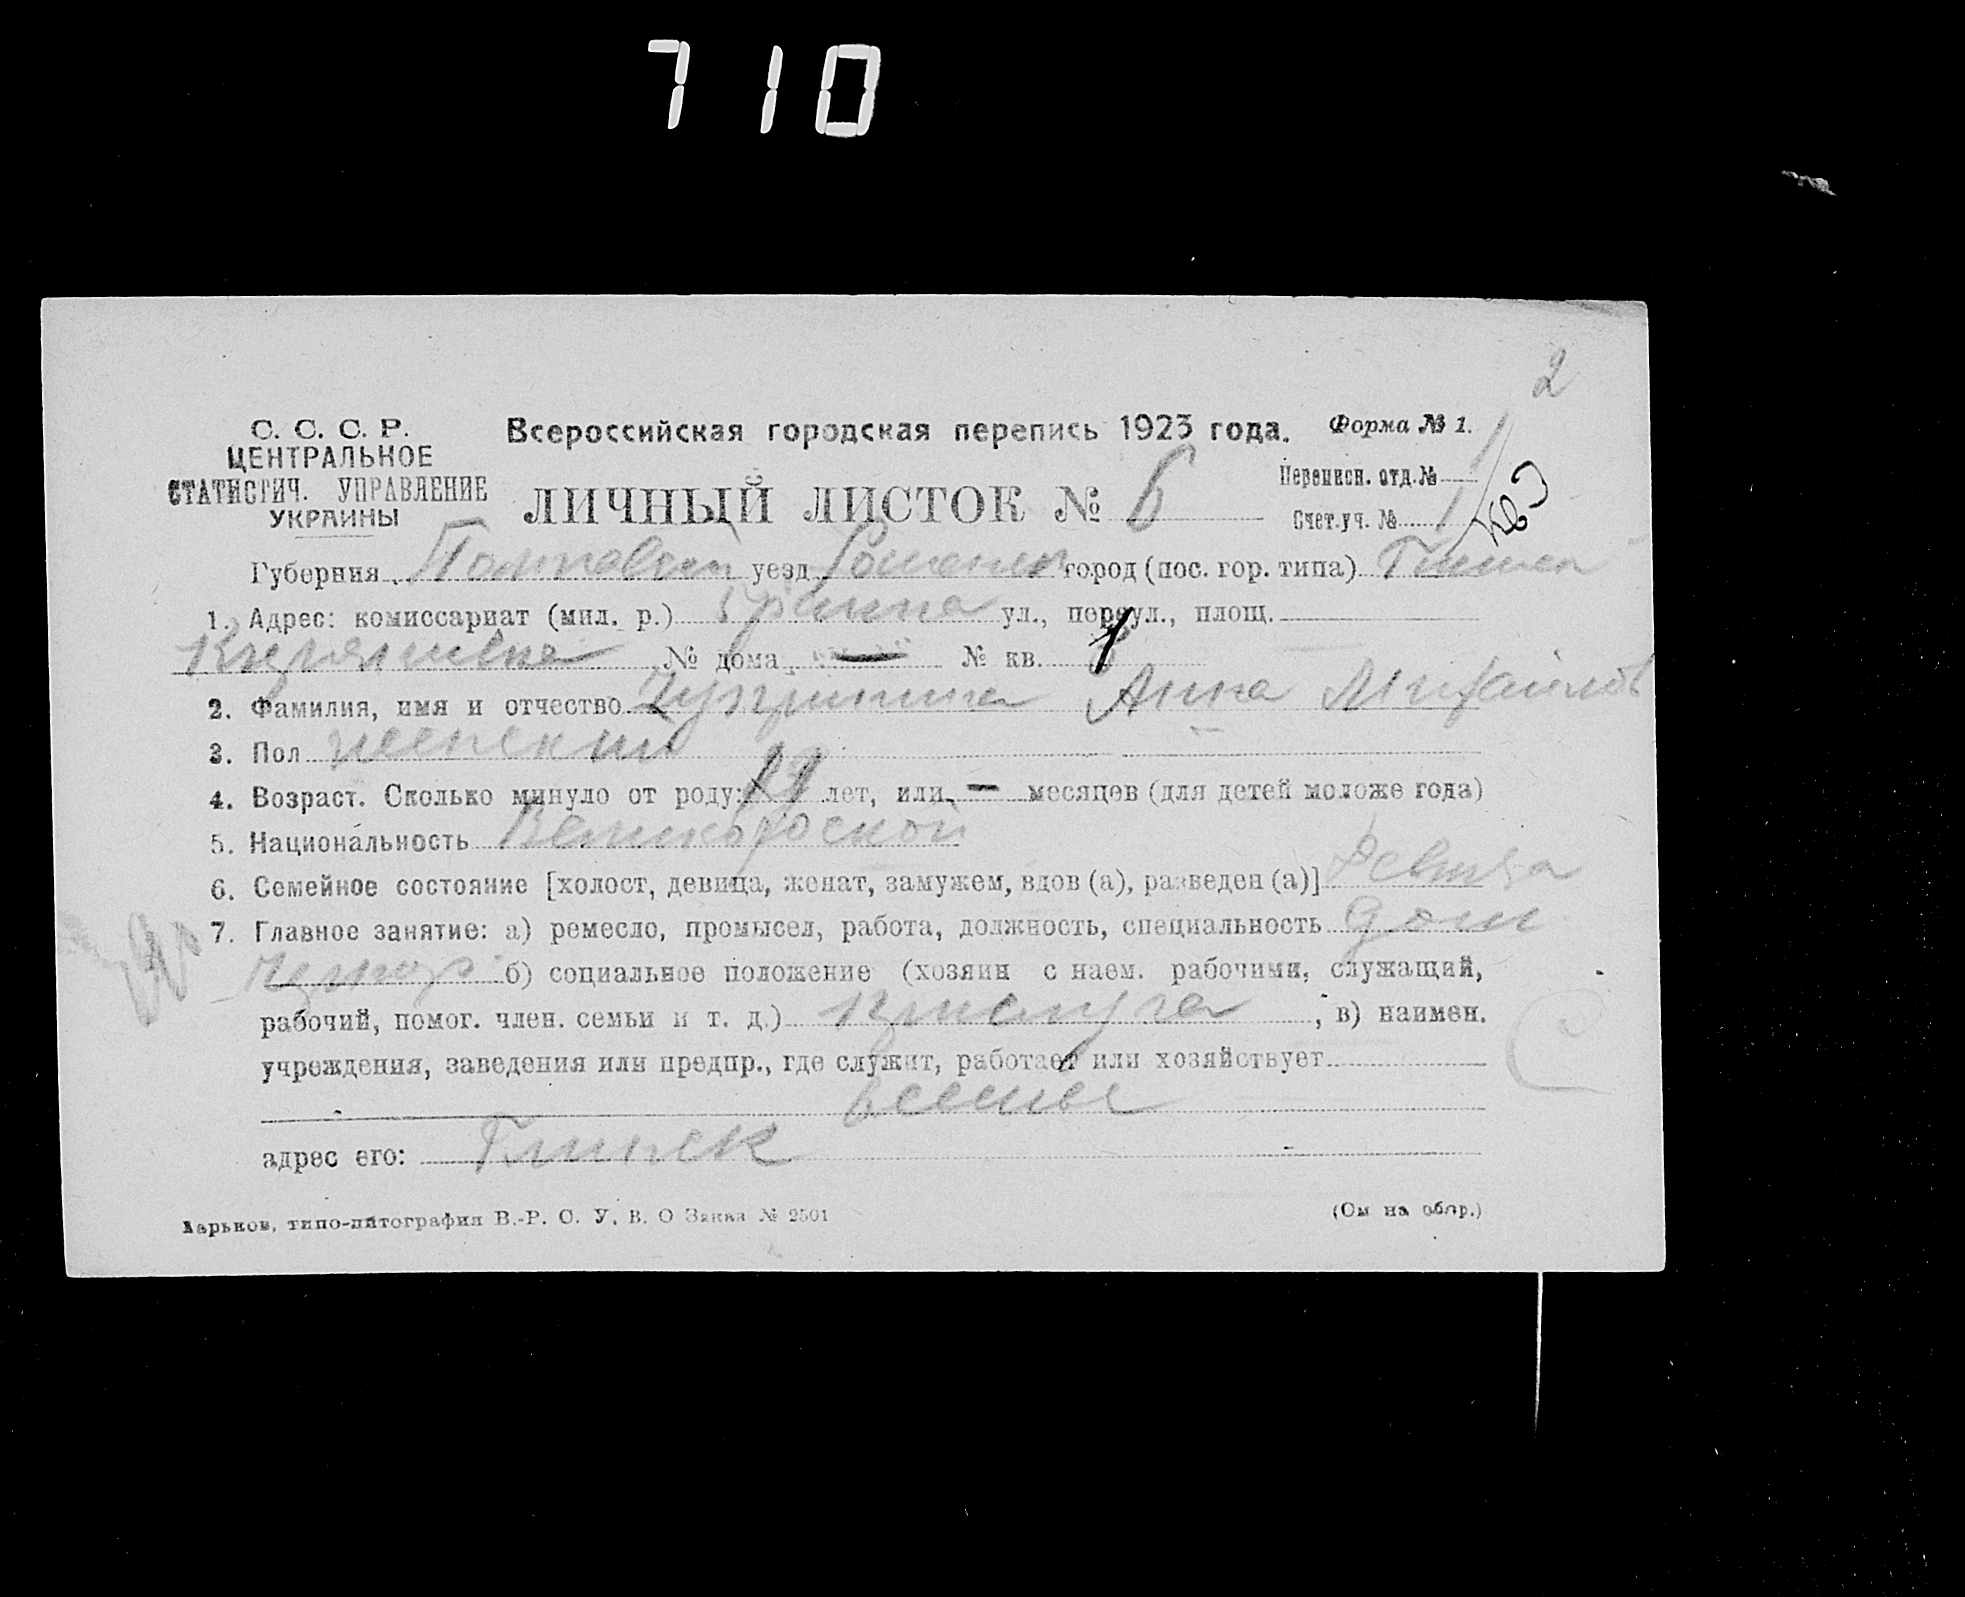 710
2
С. С. С. Р.
ЦЕНТРАЛЬНОЕ
СТАТИСТИЧ. УПРАВЛЕНИЕ
УКРАИНЫ
Всероссийская городская перепись 1923 года.
Форма № 1.
ЛИЧНЫЙ ЛИСТОК № 6
Переписн. отд. № 1
Счет. уч. № 1
Губерния Полтавская уезд Роменск город (пос. гор. типа) Глинск
1. Адрес: комиссариат (мил. р.) ул., переул., площ.
№ дома — № кв.
2. Фамилия, имя и отчество Чуприна Анна Михайлов
3. Пол женский
4. Возраст. Сколько минуло от роду: лет, или — месяцев (для детей моложе года)
5. Национальность Великоросской
6. Семейное состояние [холост, девица, женат, замужем, вдов (а), разведен (а)] Девица
7. Главное занятие: а) ремесло, промысел, работа, должность, специальность дом
б) социальное положение (хозяин с наем. рабочими, служащий,
рабочий, помог. член. семьи и т. д.) ; в) наимен.
учреждения, заведения или предпр., где служит, работает или хозяйствует
в семье
адрес его: Глинск
Харьков, типо-литография В.-Р. С. У. В. О Заказ № 2501
(См на обор.)